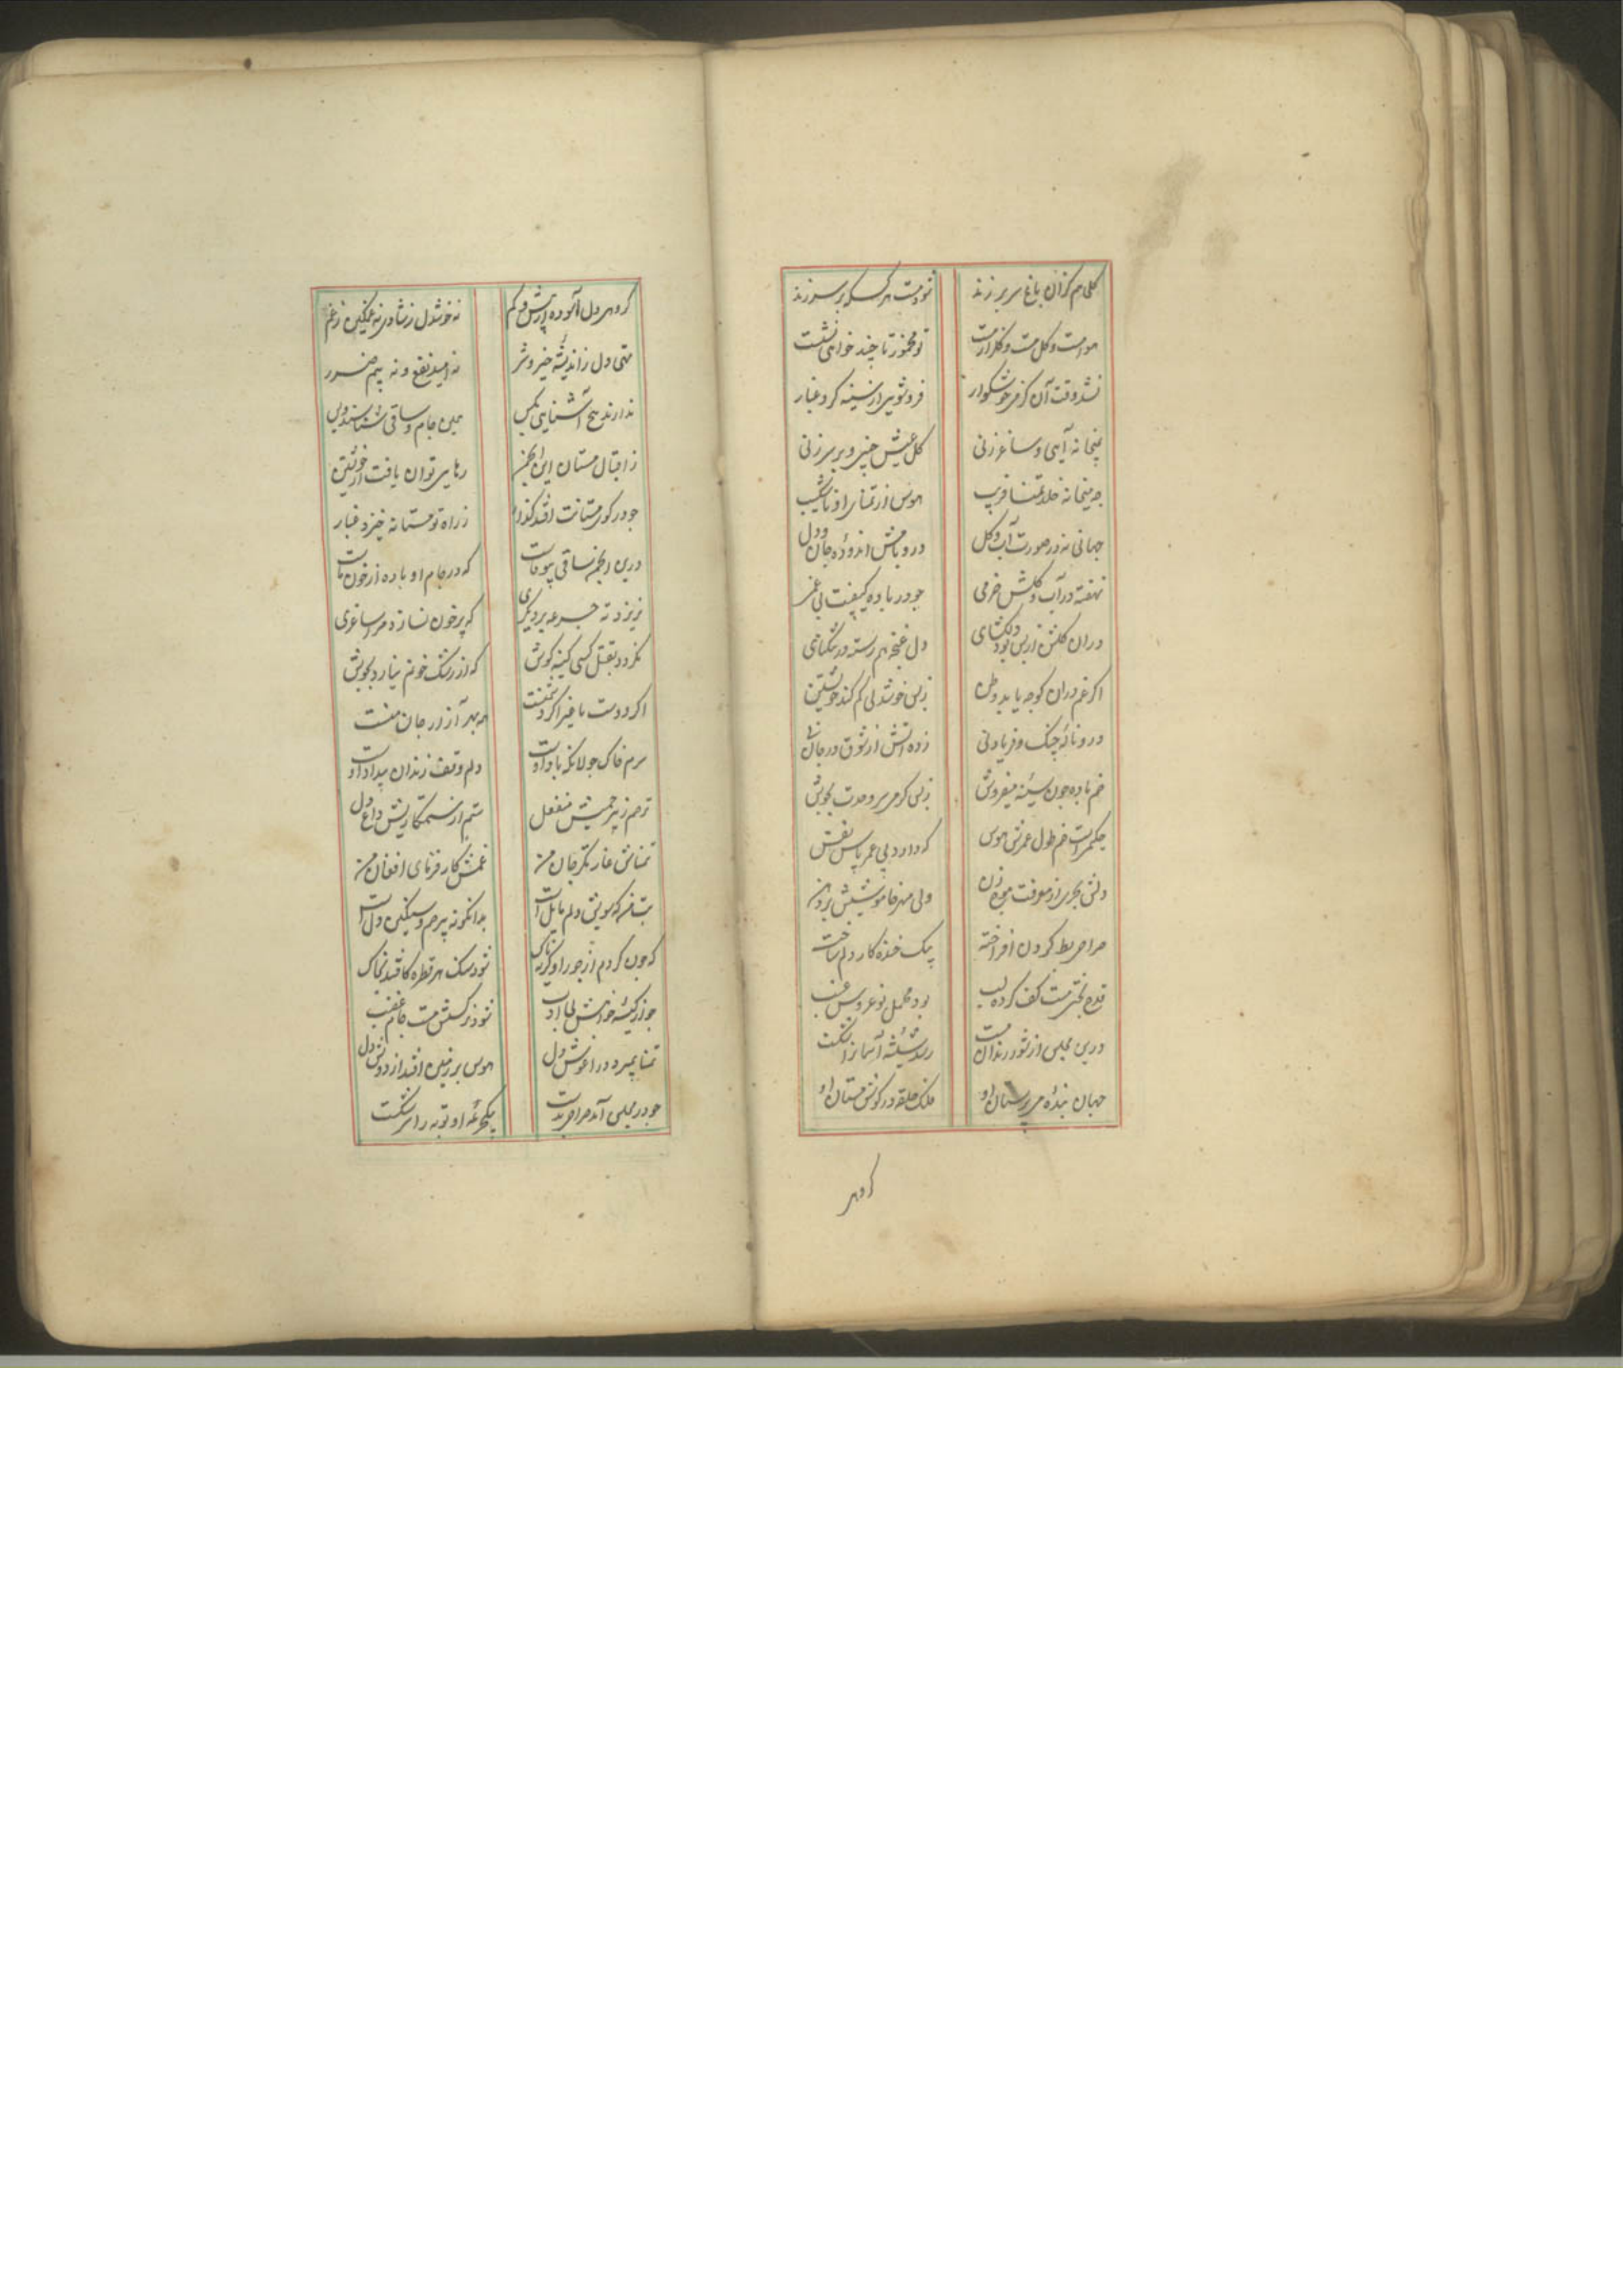 گلی هم کزان باغ سر بر زند شود مست هر کس که بر سر زند
هوا مست و گل مست و گلزار مست تو مخمور تا چند خواهی نشست
نشد وقت آن کز می خوشگوار فروشویی از سینه گرد و غبار
بمیخانه آیی و ساغر زنی گل عیش چینی و بر سر زنی
چه میخانه خلد تمنا فریب هوس از تمنای او ناشکیب
جهانی نه در صورت آب و گل در و بامش اندوده جان و دل
نهفته در آب و گلش خرمی چو در باده کیفیت بی غمی
دران گلشن از بس بود دلگشای دل غنچه هم رسته در تنگنای
اگر غم دران کوچه یابد وطن ز بس خوشدلی گم کند خویشتن
درو ناله چنگ و فریاد نی زده آتش از شوق در جان
خم باده چون سینه میفروش ز بس گرمی سر وحدت بجوش
حکیمیست خم طول عمرش هوس که دارد پی عمر پاس نفس
دلش بحری از معرفت موج زن ولی مهر خاموشیش بر دهن
صراحی بط گردن افراخته بیک خنده کار دلم ساخته
قدح بختی مست کف کرده لب بود محمل نوعروس عنب
درین مجلس از شور رندان مست رسد شیشه آسمان را شکست
جهان بنده می پرستان او فلک حلقه در گوش مستان او
گروهی
گروهی دل آسوده از بیش و کم نه خوشدل ز شادی نه غمگین ز غم
تهی دل ز اندیشه خیر و شر نه امید نفع و نه بیم ضرر
ندارند هیچ آشنایی بکس همین جام و ساقی شناسند و بس
ز اقبال مستان این انجمن رهایی توان یافت از خویشتن
چو در کوی مستانت افتد گذار ز راه تو مستانه خیزد غبار
درین انجمن ساقی بیوفاست که در جام او باده از خون ماست
نریزد ته جرعه بر دیگری که پر خون نسازد مرا ساغری
نگردد بقتل کسی کینه کوش که از رشک خونم نیارد بجوش
اگر دوست با غیر اگر دشمنست همه بهر آزار جان منست
سرم خاک جولانگه باد اوست دلم وقف زندان بیداد اوست
ترحم ز بیرحمیش منفعل ستم از ستمگاریش داغ دل
تمنایش غارتگر جان من غمش کارفرمای افغان من
بت من که سویش دلم مایل است بدانگونه بیرحم و سنگین دل است
که چون گردم از جور او گریه ناک شود سنگ هر قطره کافتد بخاک
چو از گیسه خواهش بی ادب شود نرگسش مست جام غضب
تمنا بمیرد در آغوش دل هوس بر زمین افتد از دوش دل
چو در مجلس آمد صراحی بدست بیکجرعه او توبه را سر شکست